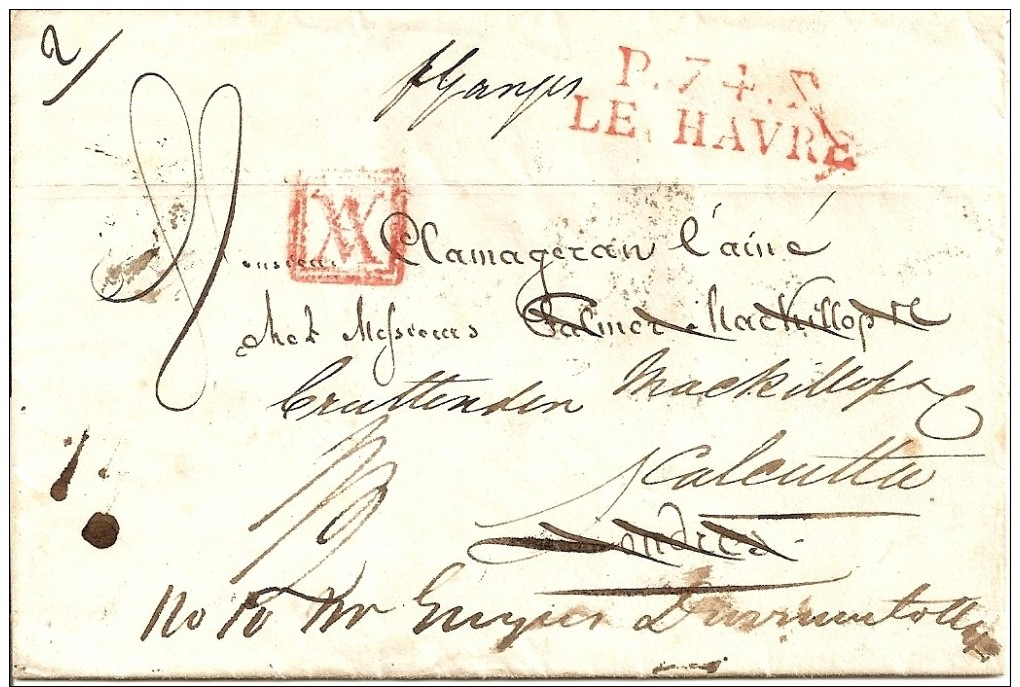 2/
p Ganges
P. 74. P.
LE HAVRE
Monsieur Clamageran l'ainé
chez Messieurs Palmer Mackillop &c
Cruttenden Mackillop & C
Calcutta
Londres
No 10